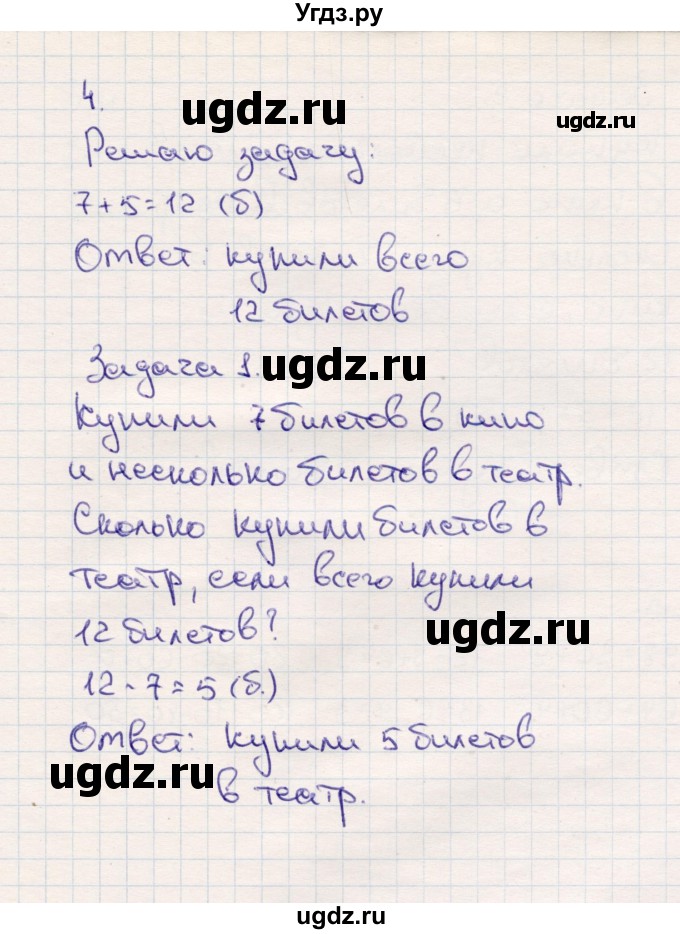 Угдз.ру
4.
ugdz.ru
ugdz.ru
Решаю задачу:
7+5=12 (б)
Ответ: купили всего
12 билетов
Задача 1.
ugdz.ru
Купили 7 билетов в кино
и несколько билетов в театр.
Сколько купили билетов в
театр, если всего купили
12 билетов?
ugdz.ru
12-7=5 (б.)
Ответ: купили 5 билетов
ugdz.ru
в театр.
ugdz.ru